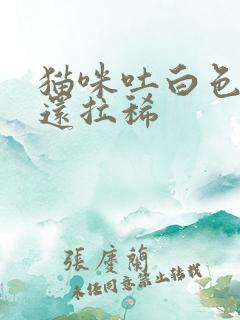 猫咪吐白色
還拉稀
張慶蘭
未经同意禁止转载